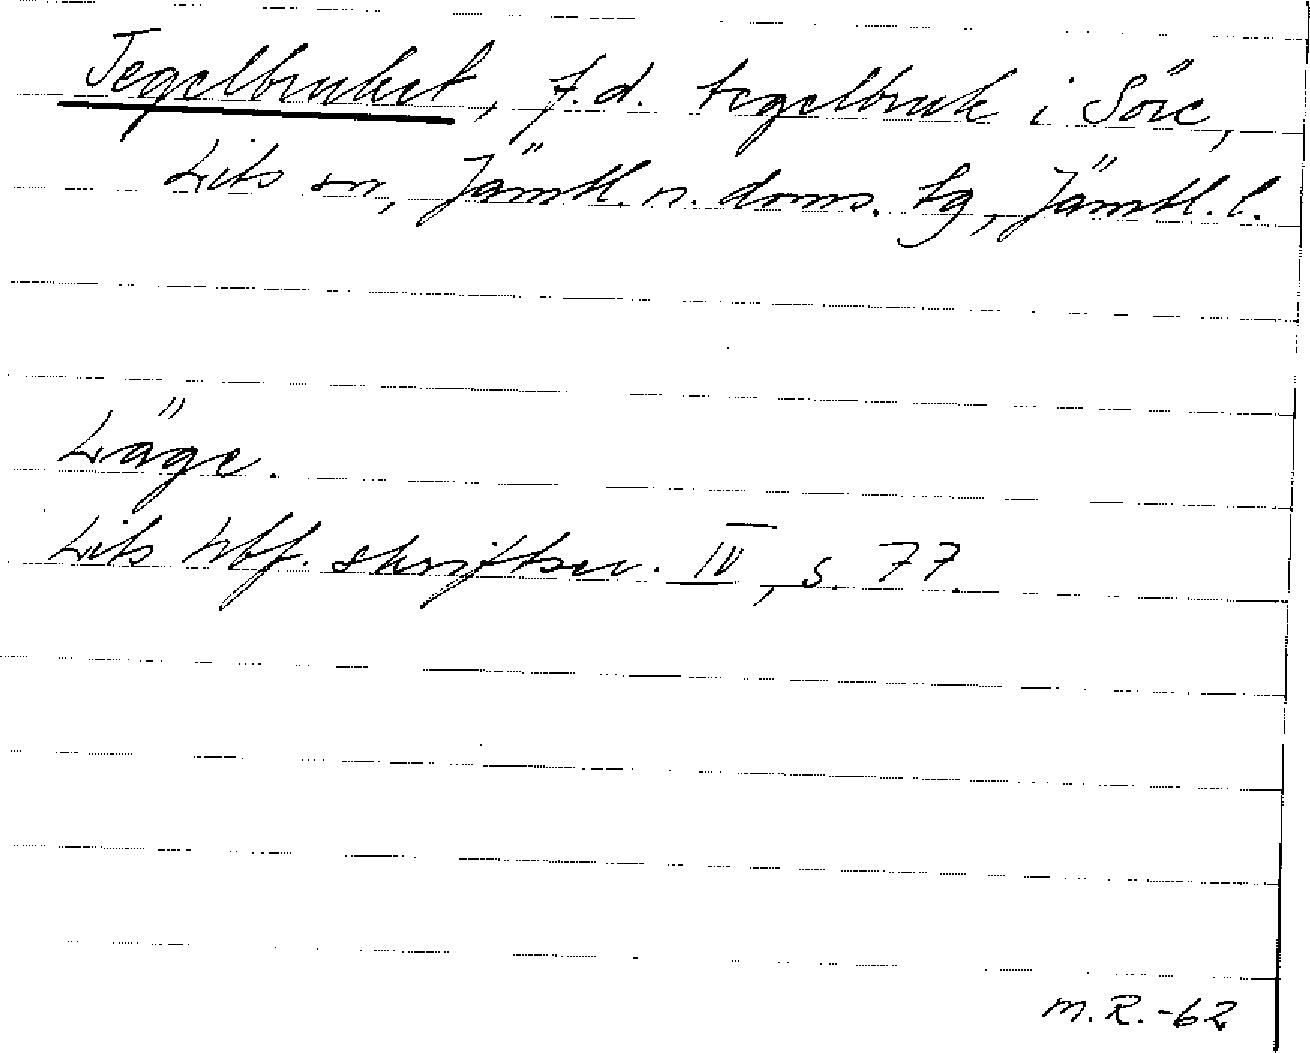 Tegelbruket, f.d. tegelbruk i Söre,
Lits sn, Jämtl. n. doms. tg, Jämtl. l.
Läge.
Lits hbf. skriftser. IV, s. 77.
M.R.-62